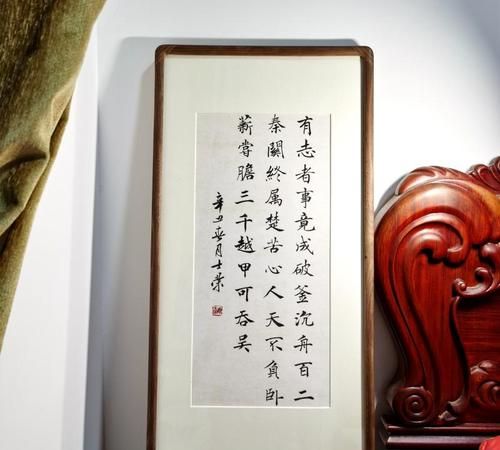 有志者事竟成破釜沉舟百二
秦關終属楚苦心人天不負卧
薪嘗膽三千越甲可吞吴
辛丑春月士荣